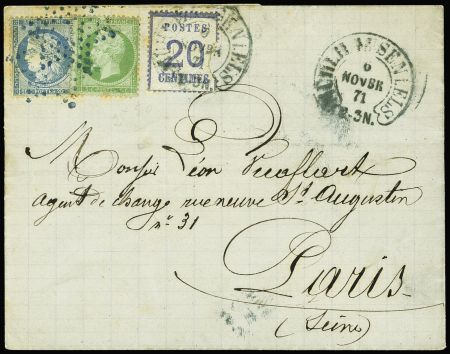 POSTES
20
CENTIMES
6
NOVBR
71
3N.
Monsieur Léon
agent de change rue neuve St. Augustin
n° 31
Paris
(Seine)